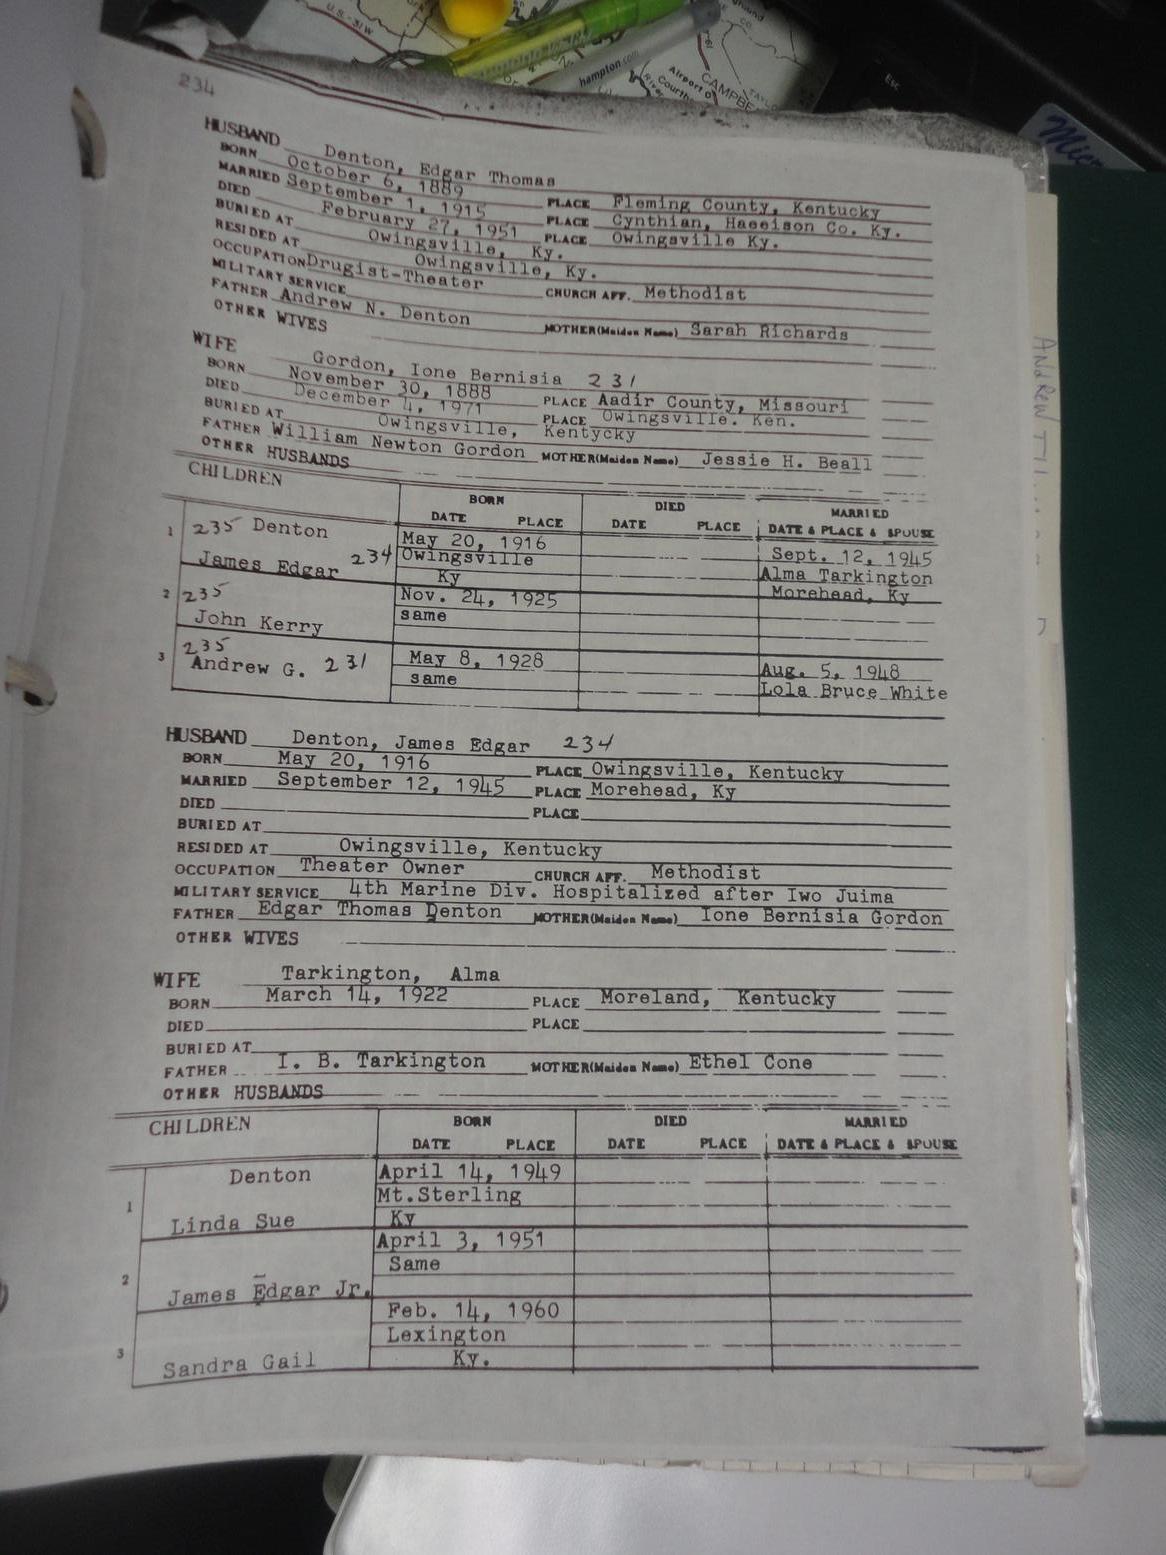 U.S.-31W
hampton.com
Airport
Courth
CAMPBE
TAYLO
Esc
234
HUSBAND Denton, Edgar Thomas
BORN October 6, 1889 PLACE Fleming County, Kentucky
MARRIED September 1, 1915 PLACE Cynthian, Haeeison Co. Ky.
DIED February 27, 1951 PLACE Owingsville Ky.
BURIED AT Owingsville, Ky.
RESIDED AT Owingsville, Ky.
OCCUPATION Drugist-Theater CHURCH AFF. Methodist
MILITARY SERVICE
FATHER Andrew N. Denton MOTHER(Maiden Name) Sarah Richards
OTHER WIVES
WIFE Gordon, Ione Bernisia 231
BORN November 30, 1888 PLACE Aadir County, Missouri
DIED December 4, 1971 PLACE Owingsville. Ken.
BURIED AT Owingsville, Kentycky
FATHER William Newton Gordon MOTHER(Maiden Name) Jessie H. Beall
OTHER HUSBANDS
CHILDREN BORN DIED MARRIED
DATE PLACE DATE PLACE DATE & PLACE & SPOUSE
1 235 Denton May 20, 1916 Sept. 12, 1945
James Edgar 234 Owingsville Alma Tarkington
Ky Morehead, Ky
2 235 Nov. 24, 1925
John Kerry same
3 235 May 8, 1928 Aug. 5, 1948
Andrew G. 231 same Lola Bruce White
HUSBAND Denton, James Edgar 234
BORN May 20, 1916 PLACE Owingsville, Kentucky
MARRIED September 12, 1945 PLACE Morehead, Ky
DIED PLACE
BURIED AT
RESIDED AT Owingsville, Kentucky
OCCUPATION Theater Owner CHURCH AFF. Methodist
MILITARY SERVICE 4th Marine Div. Hospitalized after Iwo Juima
FATHER Edgar Thomas Denton MOTHER(Maiden Name) Ione Bernisia Gordon
OTHER WIVES
WIFE Tarkington, Alma
BORN March 14, 1922 PLACE Moreland, Kentucky
DIED PLACE
BURIED AT
FATHER I. B. Tarkington MOTHER(Maiden Name) Ethel Cone
OTHER HUSBANDS
CHILDREN BORN DIED MARRIED
DATE PLACE DATE PLACE DATE & PLACE & SPOUSE
Denton April 14, 1949
1 Mt.Sterling
Linda Sue Ky
April 3, 1951
2 Same
James Edgar Jr.
Feb. 14, 1960
Lexington
3 Sandra Gail Ky.
ANDREW